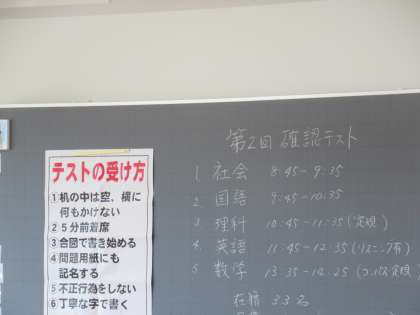 テストの受け方
1 机の中は空、横に
何もかけない
2 5分前着席
3 合図で書き始める
4 問題用紙にも
記名する
5 不正行為をしない
6 丁寧な字で書く
第2回 確認テスト
1. 社会 8:45-9:35
2. 国語 9:45-10:35
3. 理科 10:45-11:35 (定規)
4. 英語 11:45-12:35 (リスニング有)
5 数学 13:35-14:25 (コンパス 定規
在籍 33名